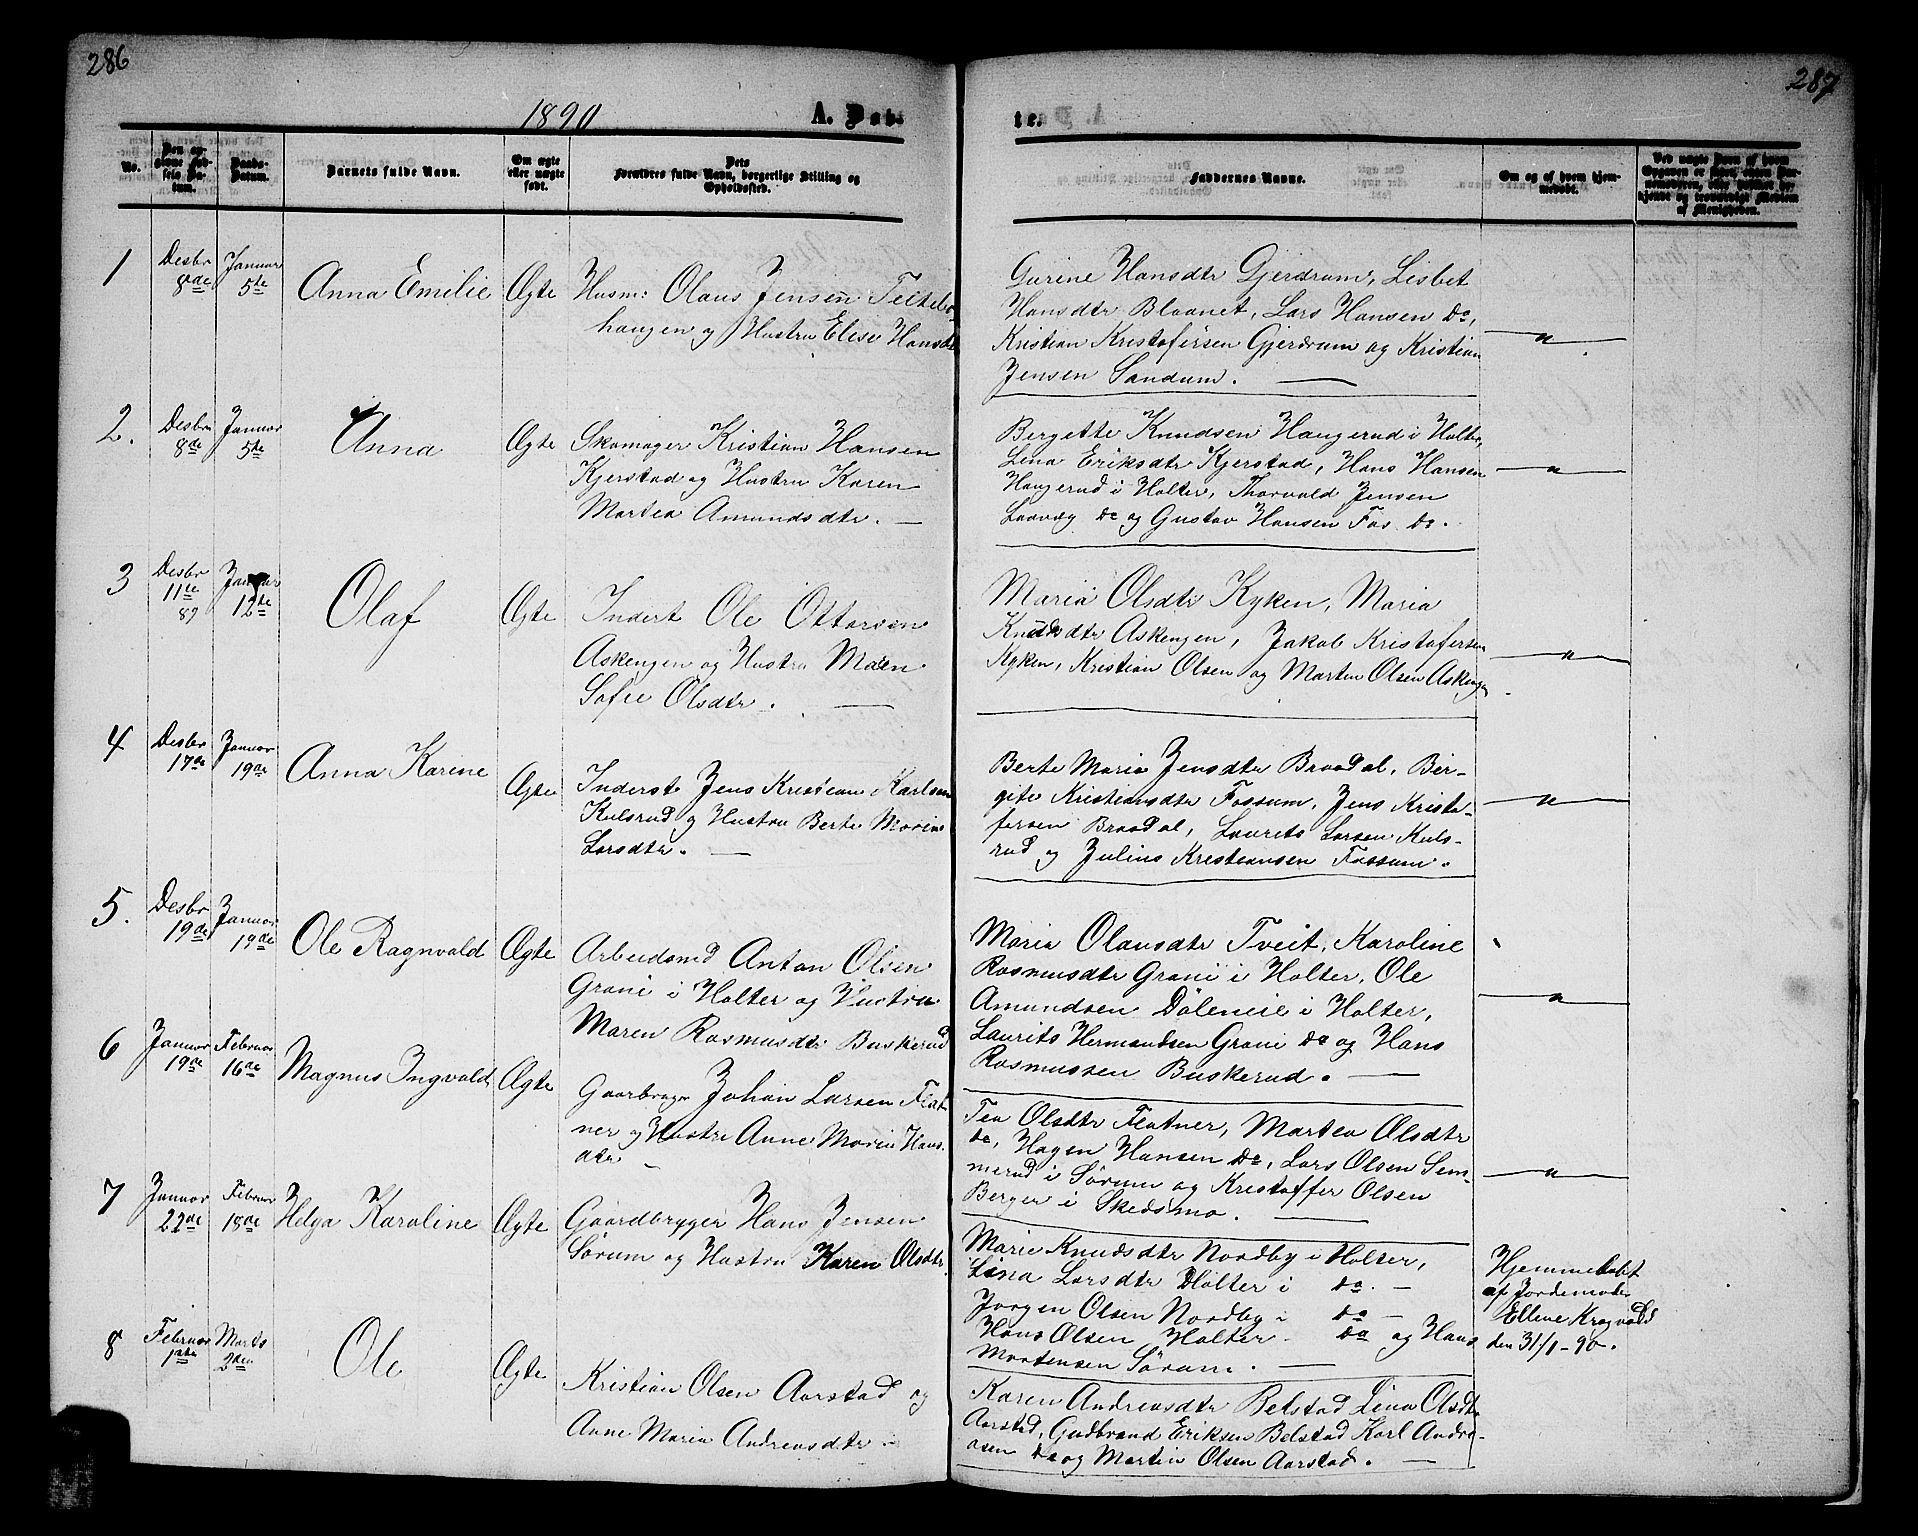 286
287
1890
A. Døb-
te.
No.
Den opgivne Fødsels Datum.
Daabs-Datum.
Barnets fulde Navn.
Om ægte eller uægte født.
Dets Forældres fulde Navn, borgerlige Stilling og Opholdssted.
Faddernes Navne.
Om og af hvem hjemmedøbt.
1
Desbr 8de
Januar 5te
Anna Emilie
Ægte
Husm: Olaus Jensen Teiteber-
haugen og Hustru Elise Hansdtr
Gurine Hansdtr Gjerdrum, Lisbet
Hansdtr Blaanet, Lars Hansen do,
Kristian Kristofersen Gjerdrum og Kristian
Jensen Sandum.
"
2.
Desbr 8de
Januar 5te
Anna
Ægte
Skomager Kristian Hansen
Kjerstad og Hustru Karen
Martea Amundsdtr.
Bergette Knudsen Haugerud i Holter,
Lina Eriksdtr Kjerstad, Hans Hansen
Haugerud i Holter, Thorvald Jensen
Laavæg do og Gustav Hansen Fos do.
"
3
Desbr 11te 89
Januar 12te
Olaf
Ægte
Inderst Ole Ottersen
Askengen og Hustru Maren
Sofie Olsdtr.
Maria Olsdtr Kyken, Maria
Knudsdtr Askengen, Jakob Kristofersen
Kyken, Kristian Olsen og Martin Olsen Askengen
"
4
Desbr 17de
Januar 19de
Anna Karine
Ægte
Inderst Jens Kristian Karlsen
Kulsrud og Hustru Berte Marine
Larsdtr.
Berte Maria Jensdtr Braadal, Bir-
gite Kristiansdtr Fossum, Jens Kristo-
fersen Braadal, Laurits Larsen Kuls-
rud og Julius Kristiansen Fossum.
"
5.
Desbr 19de
Januar 19de
Ole Ragnvald
Ægte
Arbeidsmd Anton Olsen
Grani i Holter og Hustru
Maren Rasmusdtr Buskerud
Maria Olausdtr Tveit, Karoline
Rasmusdtr Grani i Holter, Ole
Amundsen Døleneie i Holter,
Laurits Hermandsen Grani do og Hans
Rasmussen Buskerud.
"
6
Januar 19de
Februar 16de
Magnus Ingvald
Ægte
Gaarbruger Johan Larsen Flat-
ner og Hustru Anne Marie Hans-
dtr
Tea Olsdtr Flatner, Martea Olsdtr
do, Hagen Hansen do, Lars Olsen Sem-
merud i Sørum og Kristoffer Olsen
Berger i Skedsmo.
"
7
Januar 22de
Februar 18de
Helga Karoline
Ægte
Gaardbryger Hans Jensen
Sørum og Hustru Karen Olsdtr.
Marie Knudsdtr Nordby i Holter,
Lina Larsdtr Holter i do.
Jørgen Olsen Nordby i do
Hans Olsen Holter do og Hans
Mortensen Sørum.
Hjemmedøbt
af Jordemoder
Ellene Kragvold
den 31/1-90.
8
Februar 1ste
Marts 2den
Ole
Ægte
Kristian Olsen Aarstad og
Anne Maria Andreasdtr
Karen Andreasdtr Belstad Lina Olsdtr
Aarstad, Gudbrand Eriksen Belstad Karl Andre-
asen do og Martin Olsen Aarstad.